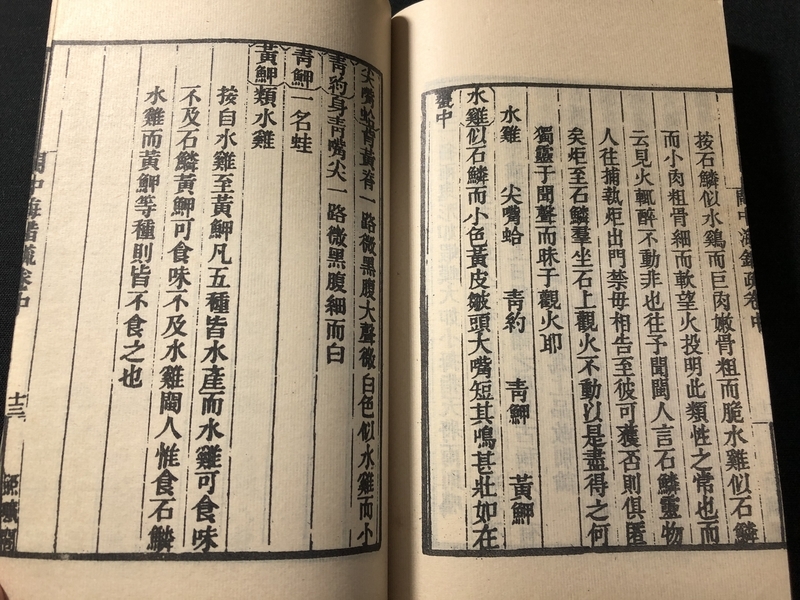 閩中海錯疏卷中
按石鱗似水鷄而巨肉嫩骨粗而脆水雞似石鱗
而小肉粗骨細而軟望火投明此類性之常也而
云見火輒醉不動非也往予聞閩人言石鱗靈物
人往捕執炬出門禁毋相告至彼可獲否則俱匿
矣炬至石鱗羣坐石上觀火不動以是盡得之何
獨靈于聞聲而昧于觀火耶
水雞 尖嘴蛤 青約 青鮃 黃鮃
水雞似石鱗而小色黃皮皺頭大嘴短其鳴甚壯如在
甕中
尖嘴蛤背黃脊一路微黑腹大聲微白色似水雞而小
青約身青嘴尖一路微黑腹細而白
青鮃一名蛙
黃鮃類水雞
按自水雞至黃鮃凡五種皆水產而水雞可食味
不及石鱗黃鮃可食味不及水雞閩人惟食石鱗
水雞而黃鮃等種則皆不食之也
閩中海錯疏卷中
十三